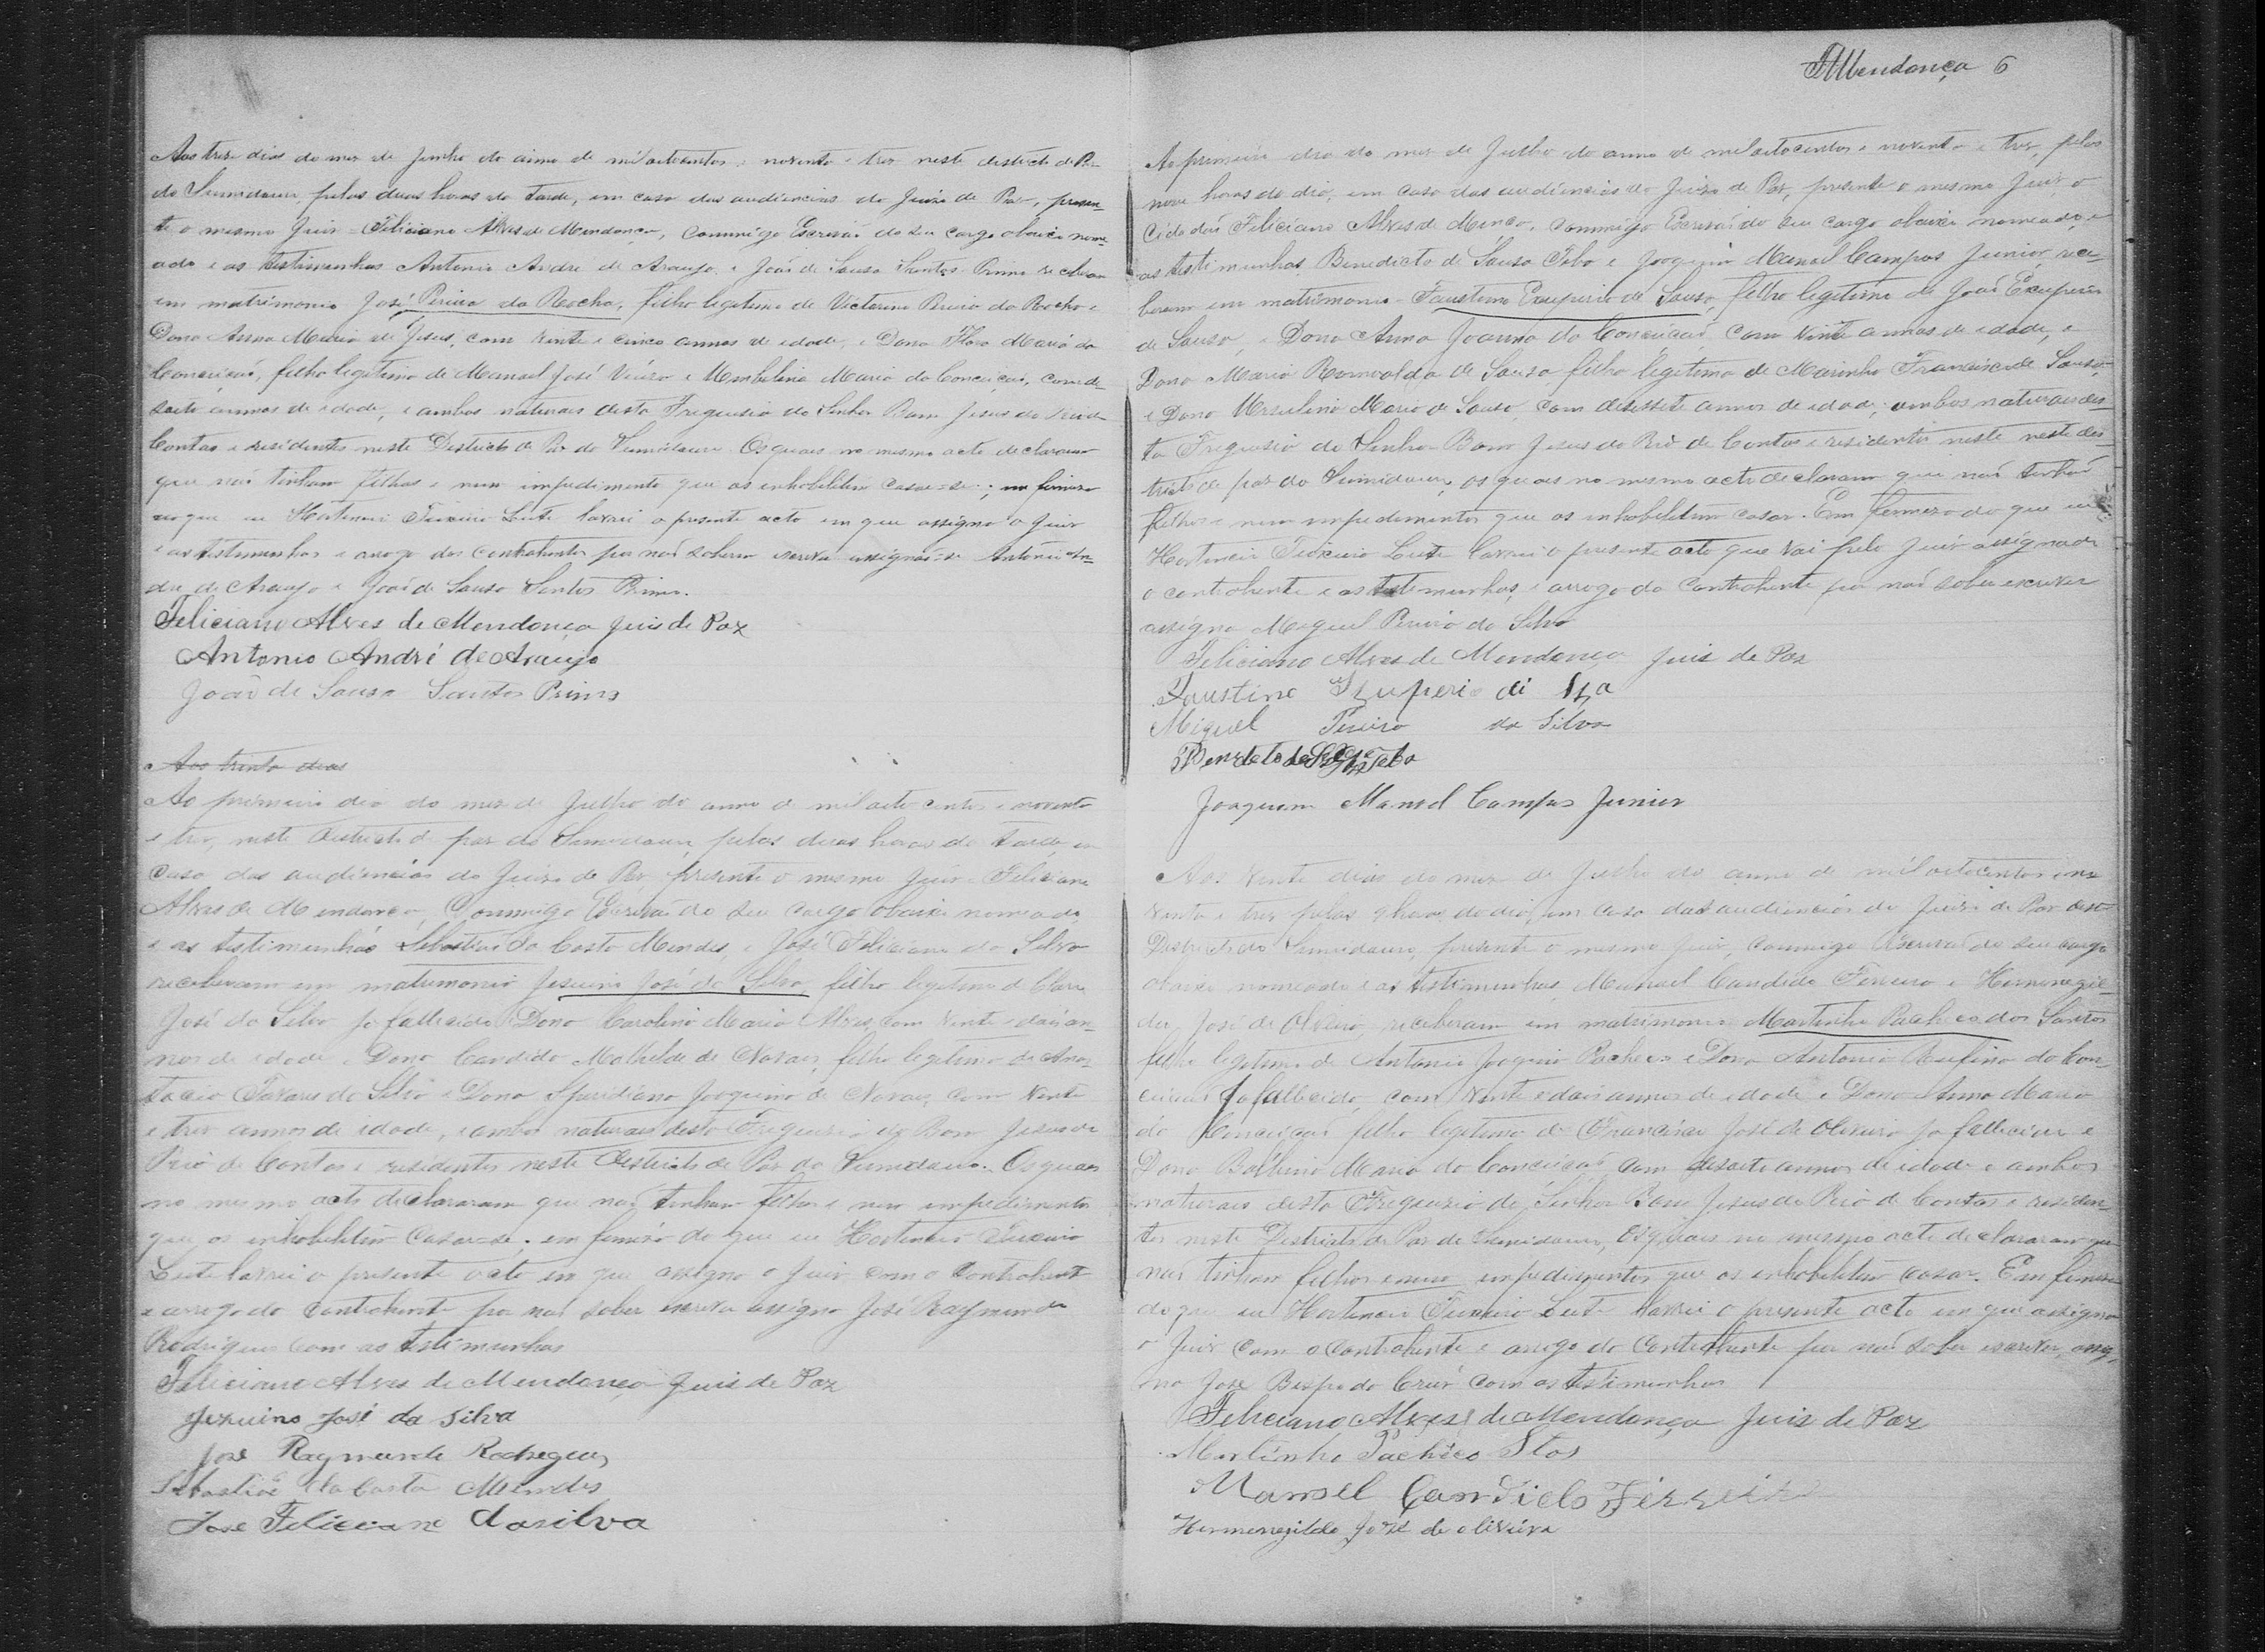 Aos tres dias do mez de Junho do anno de mil oitocentos e noventa e tres neste destricto de Paz
do Sumidouro, pelas duas horas da tarde, em casa das audiencias do Juizo de Paz, presen-
te o mesmo Juiz Feliciano Alves de Mendonça, commigo Escrivaõ do seu cargo abaixo nome-
ado e as testimunhas Antonio André de Araujo e Joaõ de Souza Santos Primo receberam
em matrimonio José Pereira da Rocha, filho legitimo de Victorino Pereira da Rocha e
Dona Anna Maria de Jesus, com vinte e cinco annos de idade, e Dona Flora Maria da
Conceiçaõ, filha legitima de Manoel José Vieira e Umbelina Maria da Conceiçaõ, com de-
soito annos de idade, e ambos naturais desta Freguesia do Senhor Bom Jesus do Rio de
Contas e residentes neste Destricto de Paz do Sumidouro. Os quaes no mesmo acto declararam
que naõ tinham filhos e nem impedimento que os inhabilitem casar-se; em firmeza
do que eu Hortencio Teixeira Leite lavrei o presente acto em que assigna o Juiz
e as testimunhas e arogo dos contrahentes por naõ saberem escrever assignaõ-se Antonio An-
dre de Araujo e Joaõ de Souza Santos Primo.
Feliciano Alves de Mendonça Juis de Paz
Antonio André de Araujo
Joaõ de Souza Santos Primo
Aos trinta dias
Ao primeiro dia do mez de Julho do anno de mil oito centos e noventa
e tres, neste destricto de paz do Sumidouro, pelas duas horas da tarde, em
casa das audiencias do Juizo de Paz, presente o mesmo Juiz Feliciano
Alves de Mendonça, Commigo Escrivaõ do seu cargo abaixo nomeado
e as testimunhas Sebastiaõ da Costa Mendes e José Feliciano da Silva
receberam em matrimonio Jesuino José da Silva, filho legitimo de
José da Silva ja fallecido e Dona Carolina Maria Alves, com vinte e dois an-
nos de idade e Dona Candida Mathilde de Novaes, filha legitima de Anas-
tacio Tavares da Silva e Dona Spiridiana Joaquina de Novaes, com vinte
e tres annos de idade, e ambos naturaes desta Freguesia do Bom Jesus do
Rio de Contas e residentes neste destricto de Paz do Sumidouro. Os quaes
no mesmo acto declararam que naõ tinham filhos e nem impedimento
que os inhabilitem casar-se; em firmeza do que eu Hortencio Teixeira
Leite lavrei o presente acto em que assigna o Juiz com o contrahente
e arrogo da contrahente por naõ saber escrever assigna José Raymundo
Rodrigues com as testimunhas
Feliciano Alves de Mendonça Juis de Paz
Jezuino José da Silva
José Raymundo Rodrigues
Sebastião da Costa Mendes
Jose Feliciano da silva
FAMendonça 6
Ao primeiro dia do mez de Julho do anno de mil oitocentos e noventa e tres, pelas
nove horas do dia, em casa das audiencias do Juizo de Paz, presente o mesmo Juiz o
Cidadaõ Feliciano Alves de, commigo Escrivaõ do seu cargo abaixo nomeado, e
as testimunhas Benedicto de Souza Tebo e Joaquim Manoel Campos Junior, rece-
beram em matrimonio Faustino Exuperio de Souza, filho legitimo de Joaõ Exuperio
de Souza, e Dona Anna Joanna da Conceiçaõ, com vinte annos de idade, e
Dona Maria Romoalda de Souza, filha legitima de Marinho Francisco de Souza,
e Dona Ursulina Maria de Souza, com desessete annos de idade; ambos naturaes des-
ta Freguesia do Senhor Bom Jesus do Rio de Contas e residentes neste neste des-
tricto de paz do Sumidouro, os quaes no mesmo acto declaram que naõ tinhaõ
filhos e nem impedimentos que os inhabilitem casar. Em firmeza do que eu
Hortencio Teixeira Leite lavrei o presente acto que vai pelo Juiz assignado
o contrahente e as testimunhas, e arrogo da contrahente por naõ saber escrever
assigna Miguel Pereira da Silva
Feliciano Alves de Mendonça Juis de Paz
Faustino Izuperio di Sza
Miguel Pereira da Silva
Benedeto de Tebo
Joaquim Manoel Campos Junior
Aos vinte dias do mez de Julho do anno de mil oitocentos e no-
venta e tres pelas 9 horas do dia, em casa das audiencias do Juizo de Paz deste
Destricto do Sumidouro, presente o mesmo Juiz, commigo Escrivaõ do seu cargo
abaixo nomeado e as testimunhas Manoel Candido Ferreira e Hermenegil-
do José de Oliveira, receberam em matrimonio Martinho Pacheco dos Santos
filho legitimo de Antonio Joaquim Pacheco e Dona Antonia Rufina da Con-
ceiçaõ Ja fallecida, com vinte e dois annos de idade e Dona Anna Maria
da Conceiçaõ filha legitima de Francisco José de Oliveira ja fallecido e
Dona Balbina Maria da Conceiçaõ, com desoito annos de idade e ambos
naturais desta Freguesia do Senhor Bom Jesus do Rio de Contas e residen-
tes neste Destricto de Paz de Sumidouro, Os quaes no mesmo acto declararam que
naõ tinham filhos e nem impedimentos que os inhabilitem casar. Em firmeza
do que eu Hortencio Teixeira Leite lavrei o presente acto em que assigna
o Juiz com o contrahente e arrogo da contrahente por naõ saber escrever, assig-
na José Bispo da Cruz com as testimunhas
Feliciano Alves de Mendonça Juis de Paz
Martinho Pachêco Stos
Manoel Candido Ferreira
Hermenegildo José de oliveira